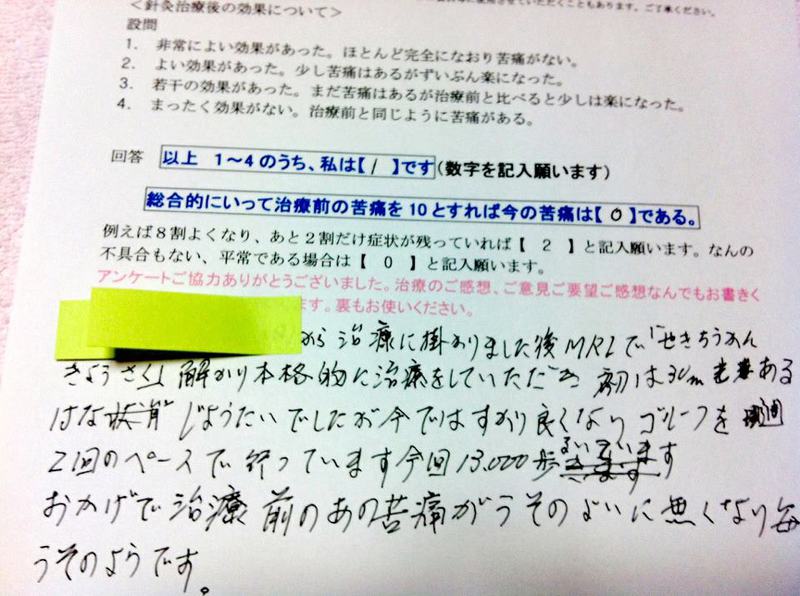 <針灸治療後の効果について>
設問
1. 非常によい効果があった。ほとんど完全になおり苦痛がない。
2. よい効果があった。少し苦痛はあるがずいぶん楽になった。
3. 若干の効果があった。まだ苦痛はあるが治療前と比べると少しは楽になった。
4. まったく効果がない。治療前と同じように苦痛がある。
回答 以上 1～4のうち、私は【 1 】です(数字を記入願います)
総合的にいって治療前の苦痛を10とすれば今の苦痛は【 0 】である。
例えば8割よくなり、あと2割だけ症状が残っていれば【 2 】と記入願います。なんの
不具合もない、平常である場合は【 0 】と記入願います。
アンケートご協力ありがとうございました。治療のご感想、ご意見ご要望ご感想なんでもお書きく
ます。裏もお使いください。
から治療に掛かりました後MRIで「せきちゅうかん
きょうさく」解かり本格的に治療をしていただき 初は30m
じょうたいでしたが今ではすかり良くなりゴルーフを 週
2回のペースで行っています今回13.000歩
おかげで治療前のあの苦痛がうそのよいに無くなり毎
うそのようです。